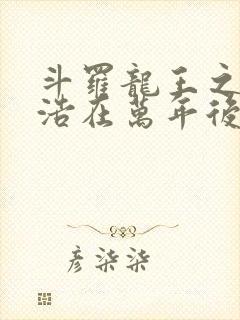 斗羅龍王之
浩在萬年後
彦柒柒